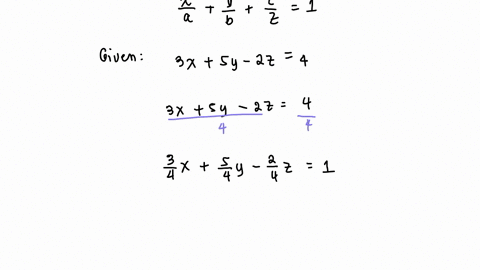 x/a + y/b + z/z = 1
Given: 3x + 5y - 2z = 4
3x + 5y - 2z / 4 = 4 / 4
3/4 x + 5/4 y - 2/4 z = 1